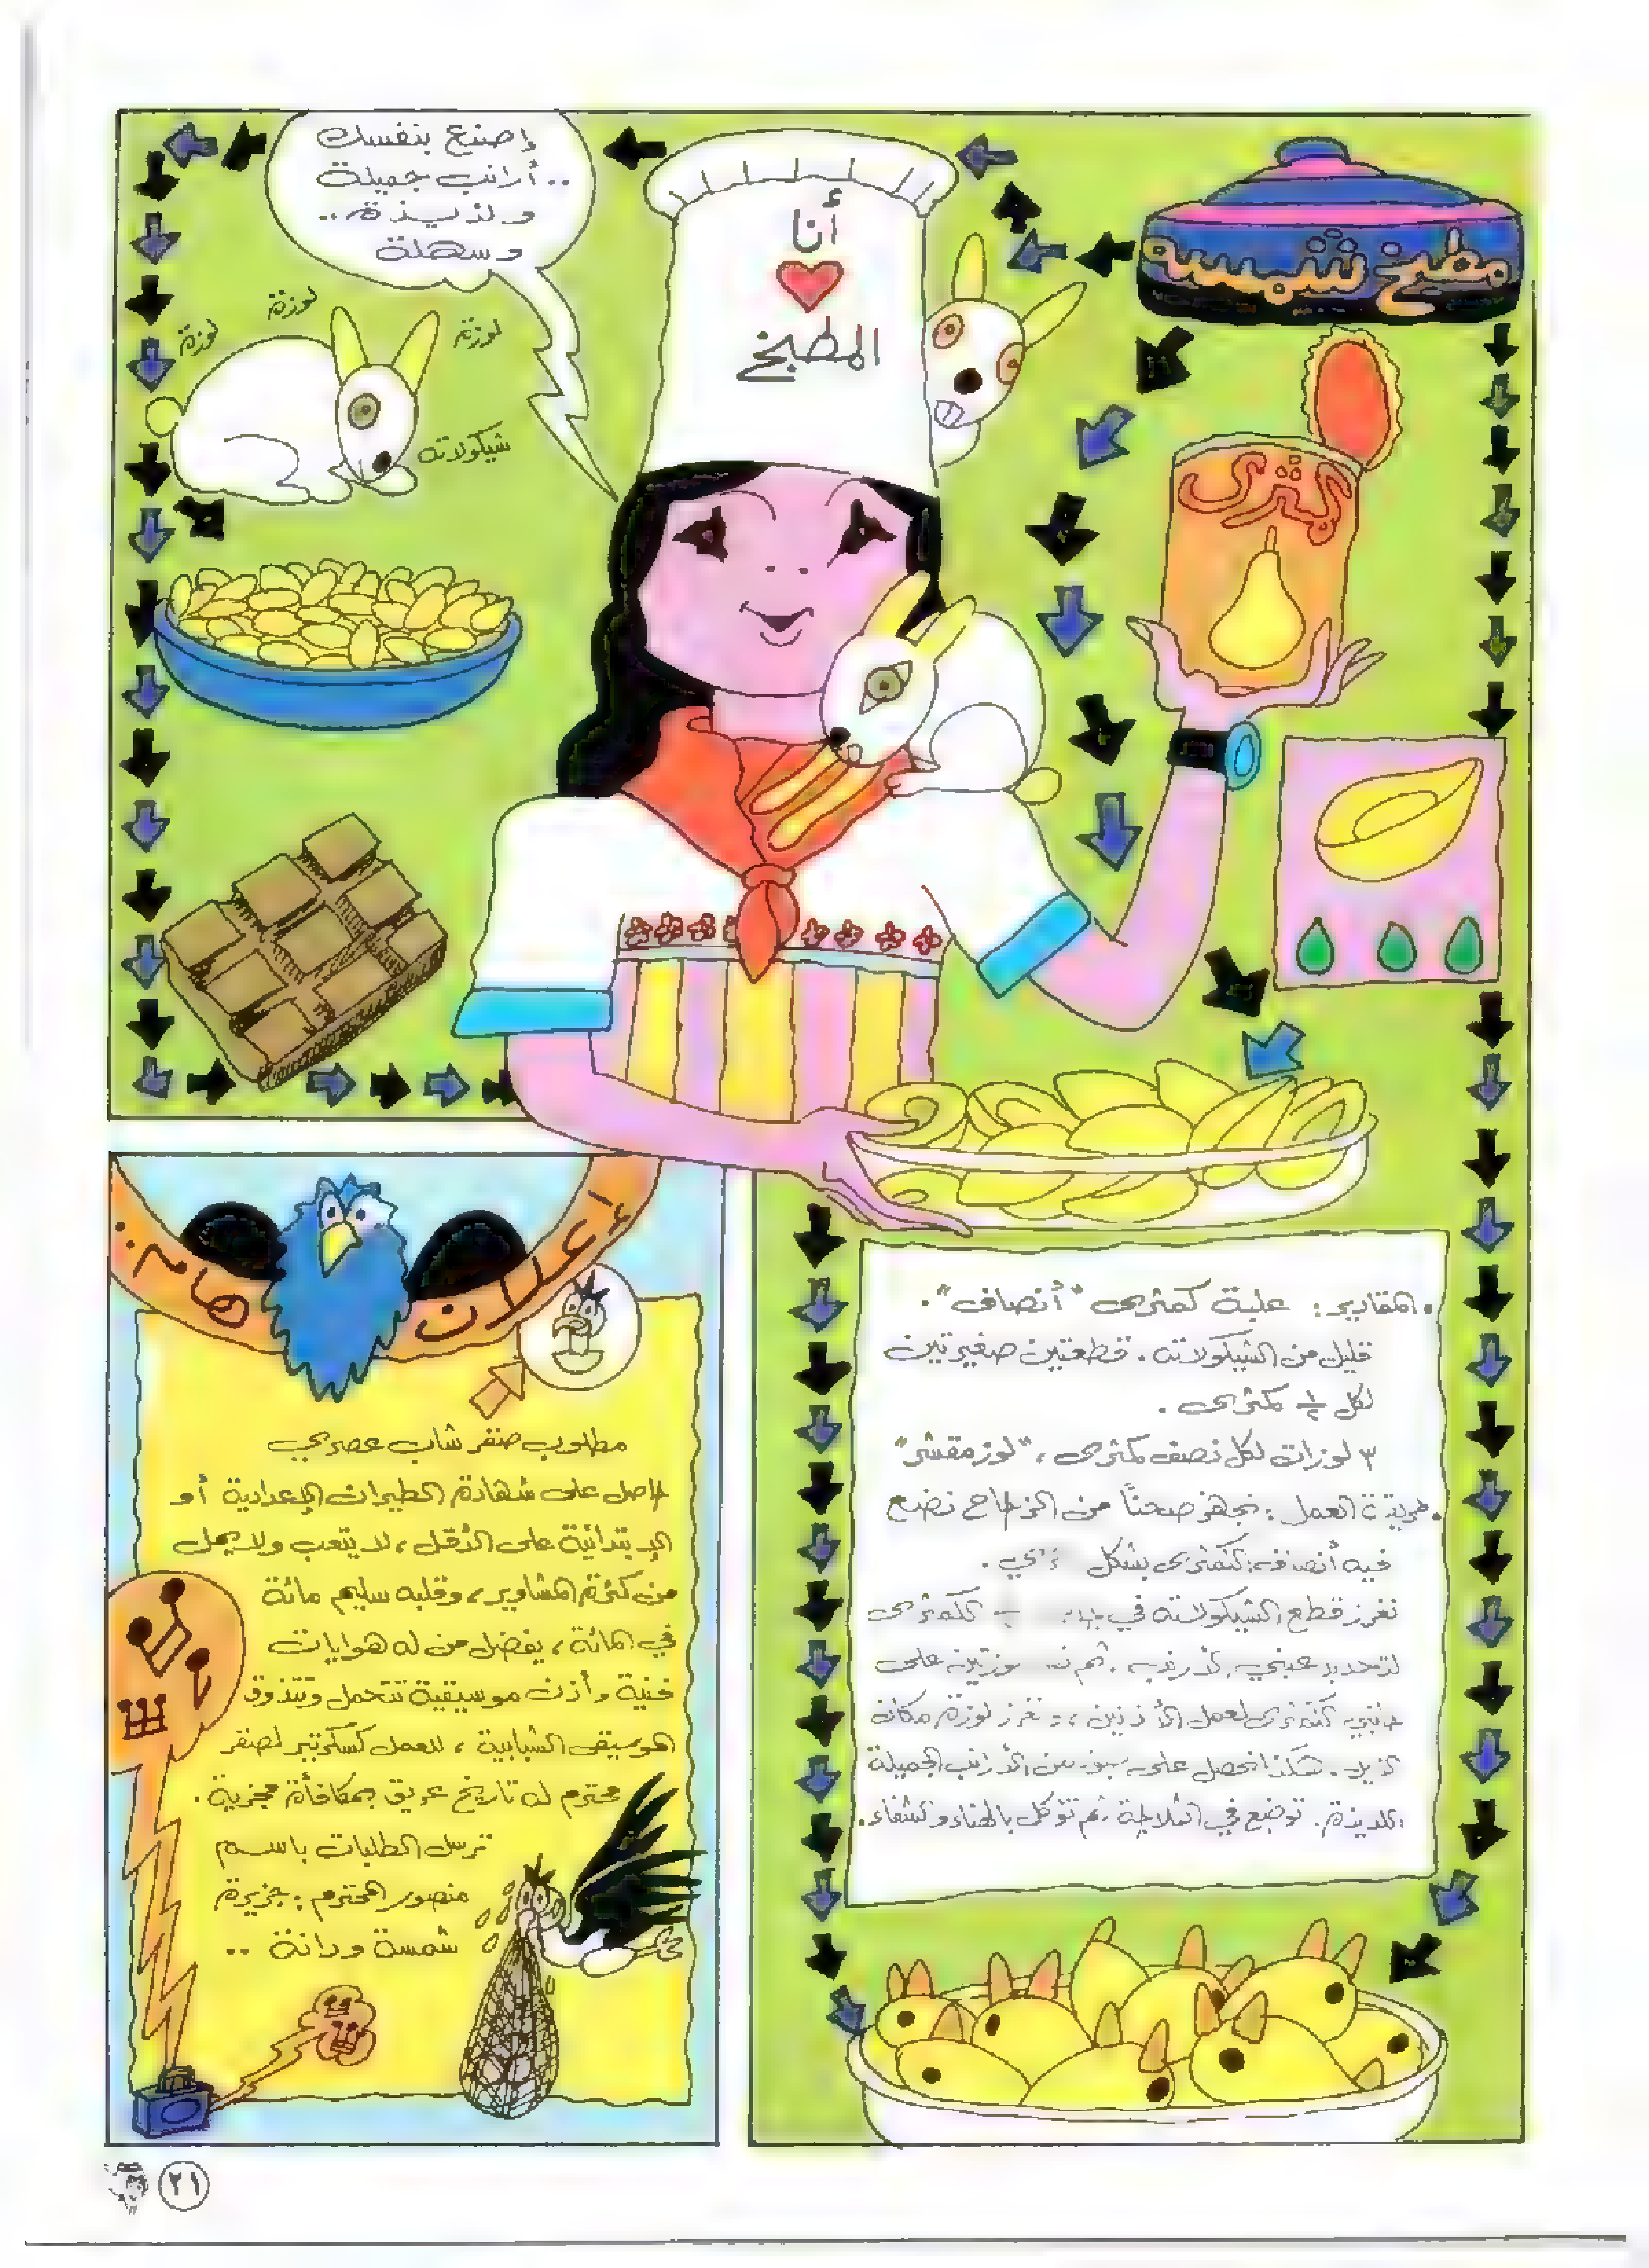 مطبخ شمسه
أنا
المطبخ
إصنع بنفسك
..أرانب جميلة
ولذيذة..
وسهلة
لوزة
لوزة
لوزة
شيكولاته
كمثرى
• المقادير: علبة كمثرى "أنصاف".
قليل من الشيكولاته. قطعتين صغيرتين
لكل ½ كمثرى.
٣ لوزات لكل نصف كمثرى، "لوز مقشر"
• طريقة العمل: نجهز صحناً من الزجاج نضع
فيه أنصاف الكمثرى بشكل
نغرز قطع الشيكولاته في الكمثرى
لتحديد عيني الأرنب. ثم لوزتين على
جانبي الكمثرى لعمل الأذنين، ونغرز لوزة مكان
الذيل. هكذا نحصل على من الأرانب الجميلة
اللذيذة. توضع في الثلاجة ثم تؤكل بالهناء والشفاء.
إعلان هام..
مطلوب صقر شاب عصري
حاصل على شهادة الطيران الإعدادية أو
الإبتدائية على الأقل، لا يتعب ولا يمل
من كثرة المشاوير، وقلبه سليم مائة
في المائة، يفضل من له هوايات
فنية وأذن موسيقية تتحمل وتتذوق
الموسيقى الشبابية، للعمل كسكرتير لصقر
محترم له تاريخ عريق بمكافأة مجزية.
ترسل الطلبات باسم
منصور المحترم: جزيرة
شمسة ودانة ..
٢١